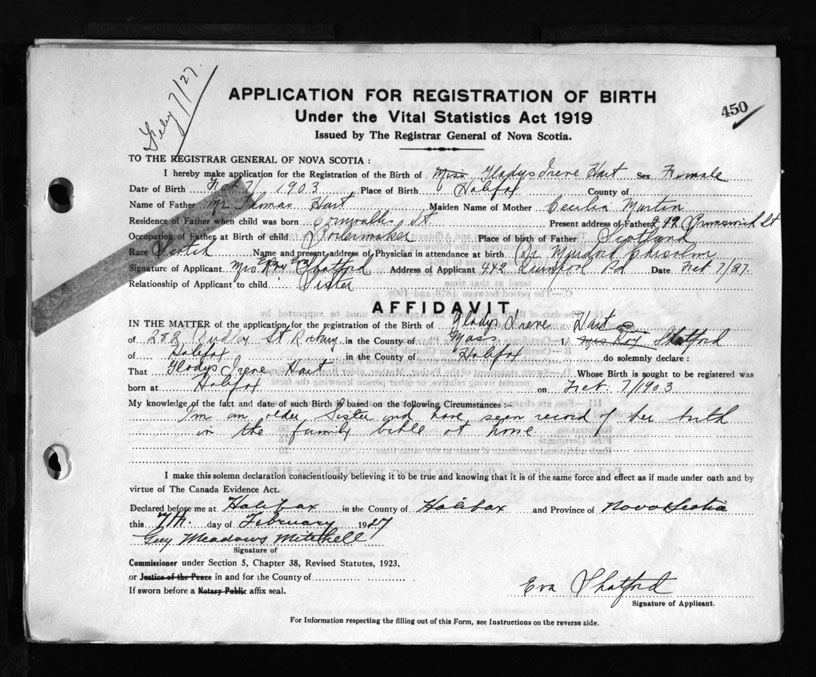 Feby 7/27.
APPLICATION FOR REGISTRATION OF BIRTH
450
Under the Vital Statistics Act 1919
Issued by The Registrar General of Nova Scotia.
TO THE REGISTRAR GENERAL OF NOVA SCOTIA :
I hereby make application for the Registration of the Birth of Miss Gladys Irene Hart Sex Female
Date of Birth Feb. 7/1903 Place of Birth Halifax County of
Name of Father Mr Thomas Hart Maiden Name of Mother Cecilia Martin
Residence of Father when child was born Cornwallis St. Present address of Father 249 Brunswick St
Occupation of Father at Birth of child Boilermaker Place of birth of Father Scotland
Race Scotch Name and present address of Physician in attendance at birth Dr Chisholm
Signature of Applicant Mrs Roy Eva Shatford Address of Applicant 442 Quinpool Rd Date Feb 7/27.
Relationship of Applicant to child Sister
AFFIDAVIT.
IN THE MATTER of the application for the registration of the Birth of Gladys Irene Hart
of 288 St in the County of Mass I, Mrs Roy Eva Shatford
of Halifax in the County of Halifax do solemnly declare :
That Gladys Irene Hart Whose Birth is sought to be registered was
born at Halifax on Feb. 7/1903
My knowledge of the fact and date of such Birth is based on the following Circumstances :-
I'm an older Sister and have seen record of her birth
in the family bible at home
I make this solemn declaration conscientiously believing it to be true and knowing that it is of the same force and effect as if made under oath and by
virtue of The Canada Evidence Act.
Declared before me at Halifax in the County of Halifax and Province of Nova Scotia
this 7th. day of February 1927
Guy Meadows Mitchell
Signature of
Commissioner under Section 5, Chapter 38, Revised Statutes, 1923.
or Justice of the Peace in and for the County of
If sworn before a Notary Public affix seal.
Eva Shatford
Signature of Applicant.
For Information respecting the filling out of this Form, see Instructions on the reverse side.